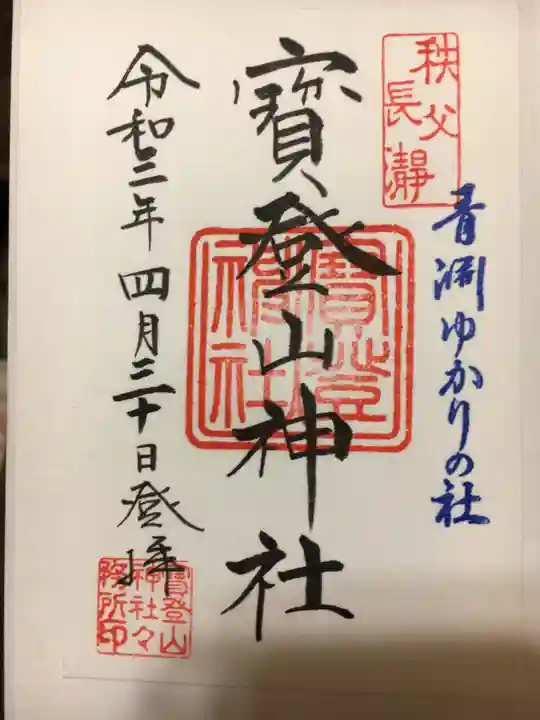 秩父
長瀞
青渊ゆかりの社
寳登山神社
寳登
神社
令和三年四月三十日登拝
寳登山
神社々
務所印